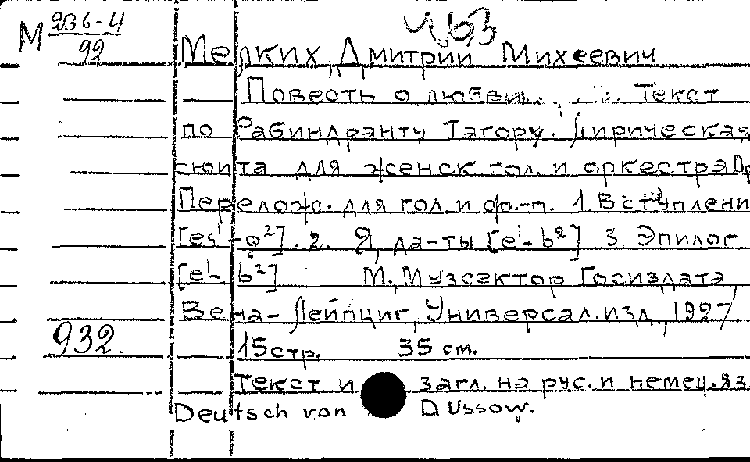 М 236-4
99
Мелких, Дмитрий Михеевич
Повесть о любви. Текст
по Рабиндранту Тагору. Лирическая
сюита для женск. гол. и оркестра
Перелож. для гол. и ф.-п. 1. Вступлени
2. Я, да-ты [e¹-b²] 3. Эпилог
[e¹-b²] М., Музсектор Госиздата,
Вена-Лейпциг, Универсал. изд, 1927
932. 15 стр. 35 cm.
Текст и загл. на рус. и немец. яз
Deutsch von D Ussow.